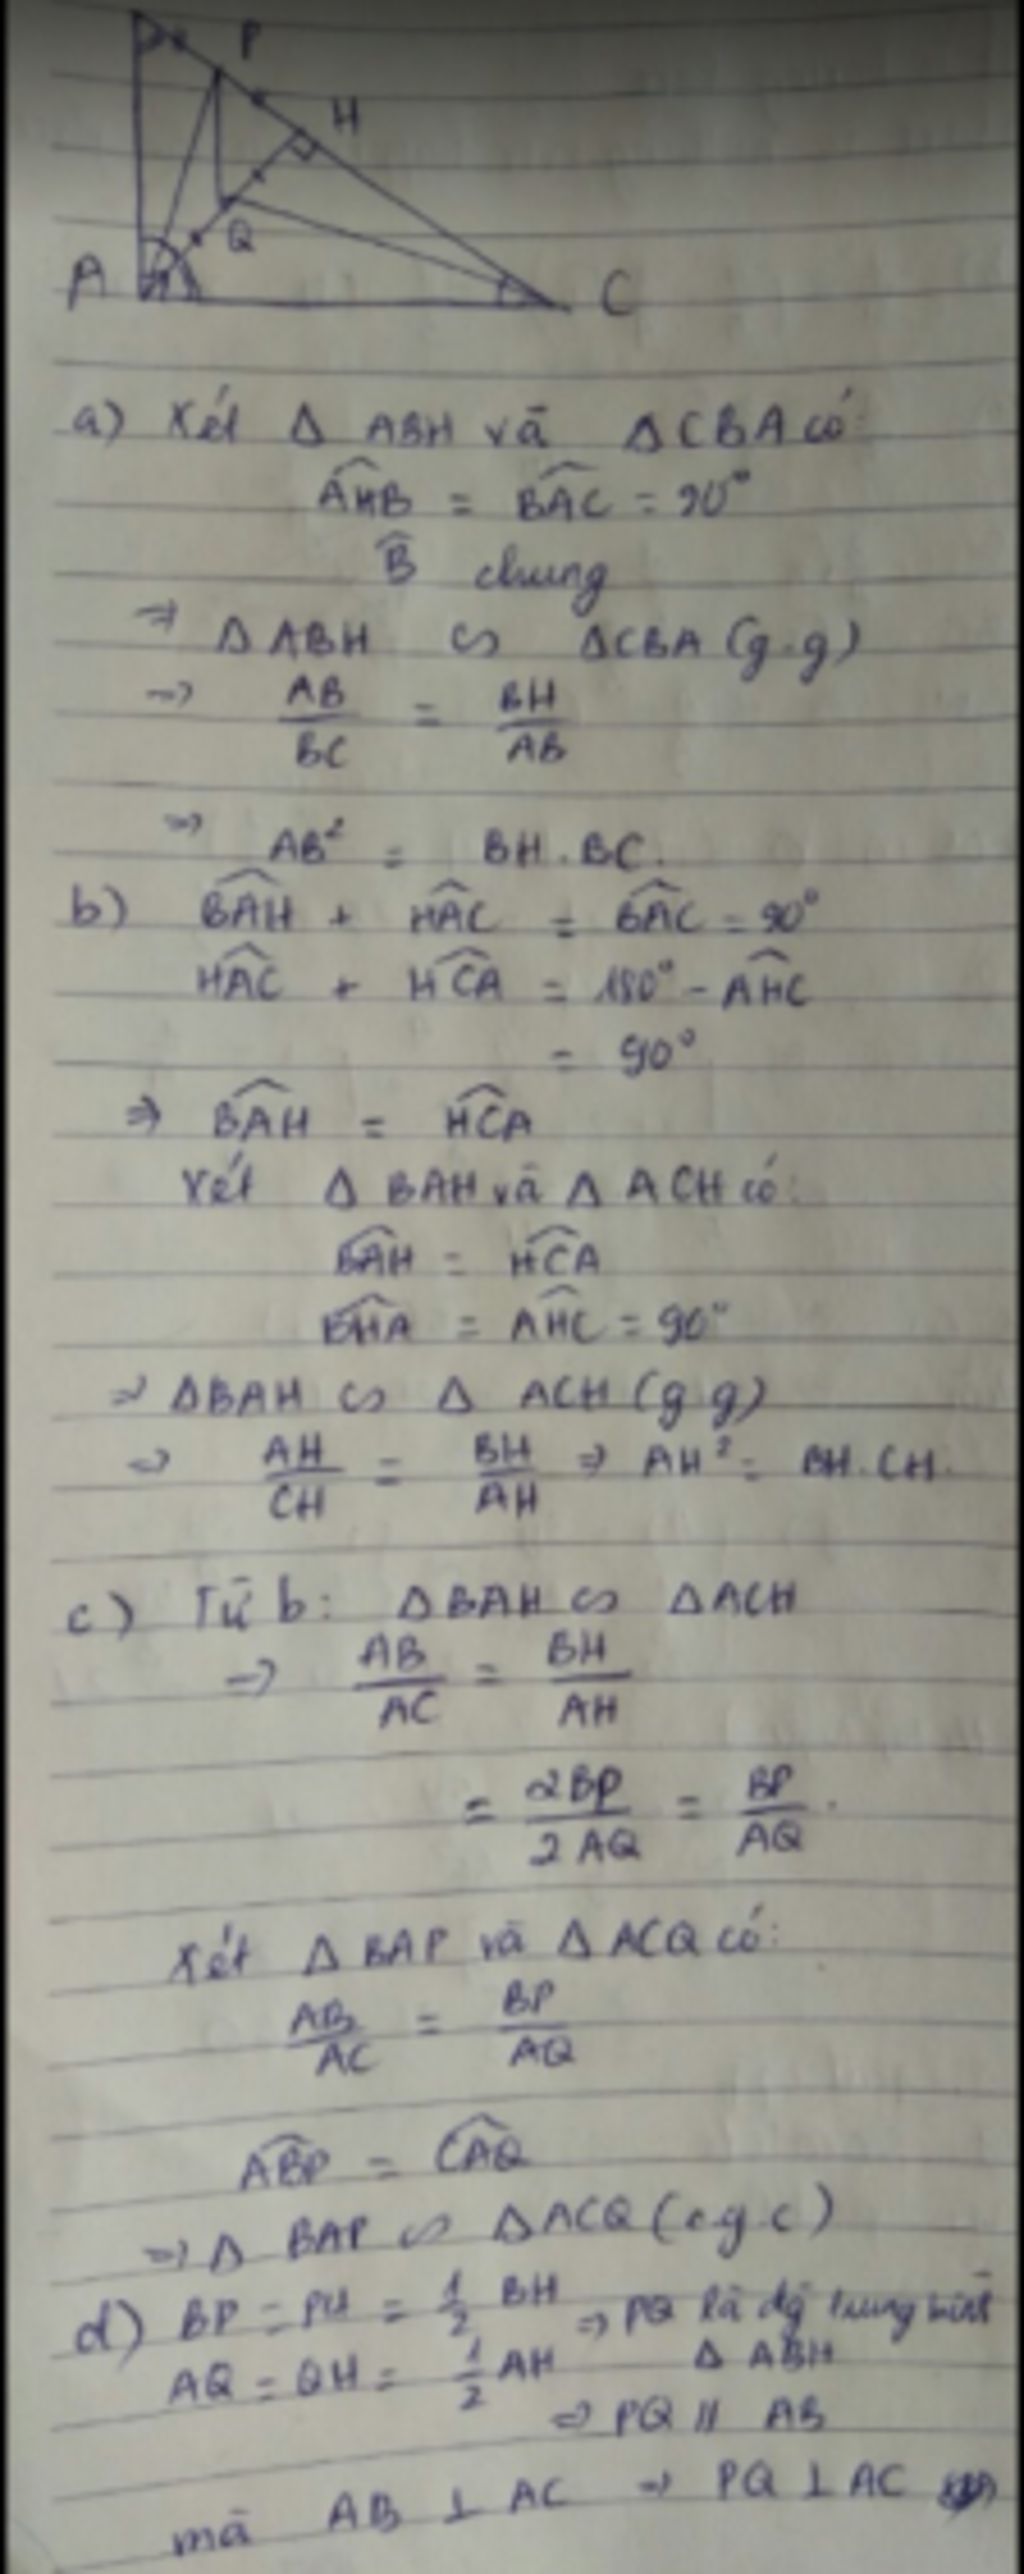 P
H
Q
A
C
a) Xét Δ ABH và Δ CBA có:
\widehat{AHB} = \widehat{BAC} = 90°
\widehat{B} chung
⇒ Δ ABH ∽ Δ CBA (g.g)
⇒ \frac{AB}{BC} = \frac{BH}{AB}
⇒ AB² = BH . BC.
b) \widehat{BAH} + \widehat{HAC} = \widehat{BAC} = 90°
\widehat{HAC} + \widehat{HCA} = 180° - \widehat{AHC}
= 90°
⇒ \widehat{BAH} = \widehat{HCA}
Xét Δ BAH và Δ ACH có:
\widehat{BAH} = \widehat{HCA}
\widehat{BHA} = \widehat{AHC} = 90°
⇒ Δ BAH ∽ Δ ACH (g.g)
⇒ \frac{AH}{CH} = \frac{BH}{AH} ⇒ AH² = BH.CH.
c) Từ b: Δ BAH ∽ Δ ACH
⇒ \frac{AB}{AC} = \frac{BH}{AH}
= \frac{2BP}{2AQ} = \frac{BP}{AQ}.
Xét Δ BAP và Δ ACQ có:
\frac{AB}{AC} = \frac{BP}{AQ}
\widehat{ABP} = \widehat{CAQ}
⇒ Δ BAP ∽ Δ ACQ (c.g.c)
d) BP = PH = \frac{1}{2} BH ⇒ PQ là đg trung bình
AQ = QH = \frac{1}{2} AH Δ ABH
⇒ PQ // AB
mà AB ⊥ AC ⇒ PQ ⊥ AC